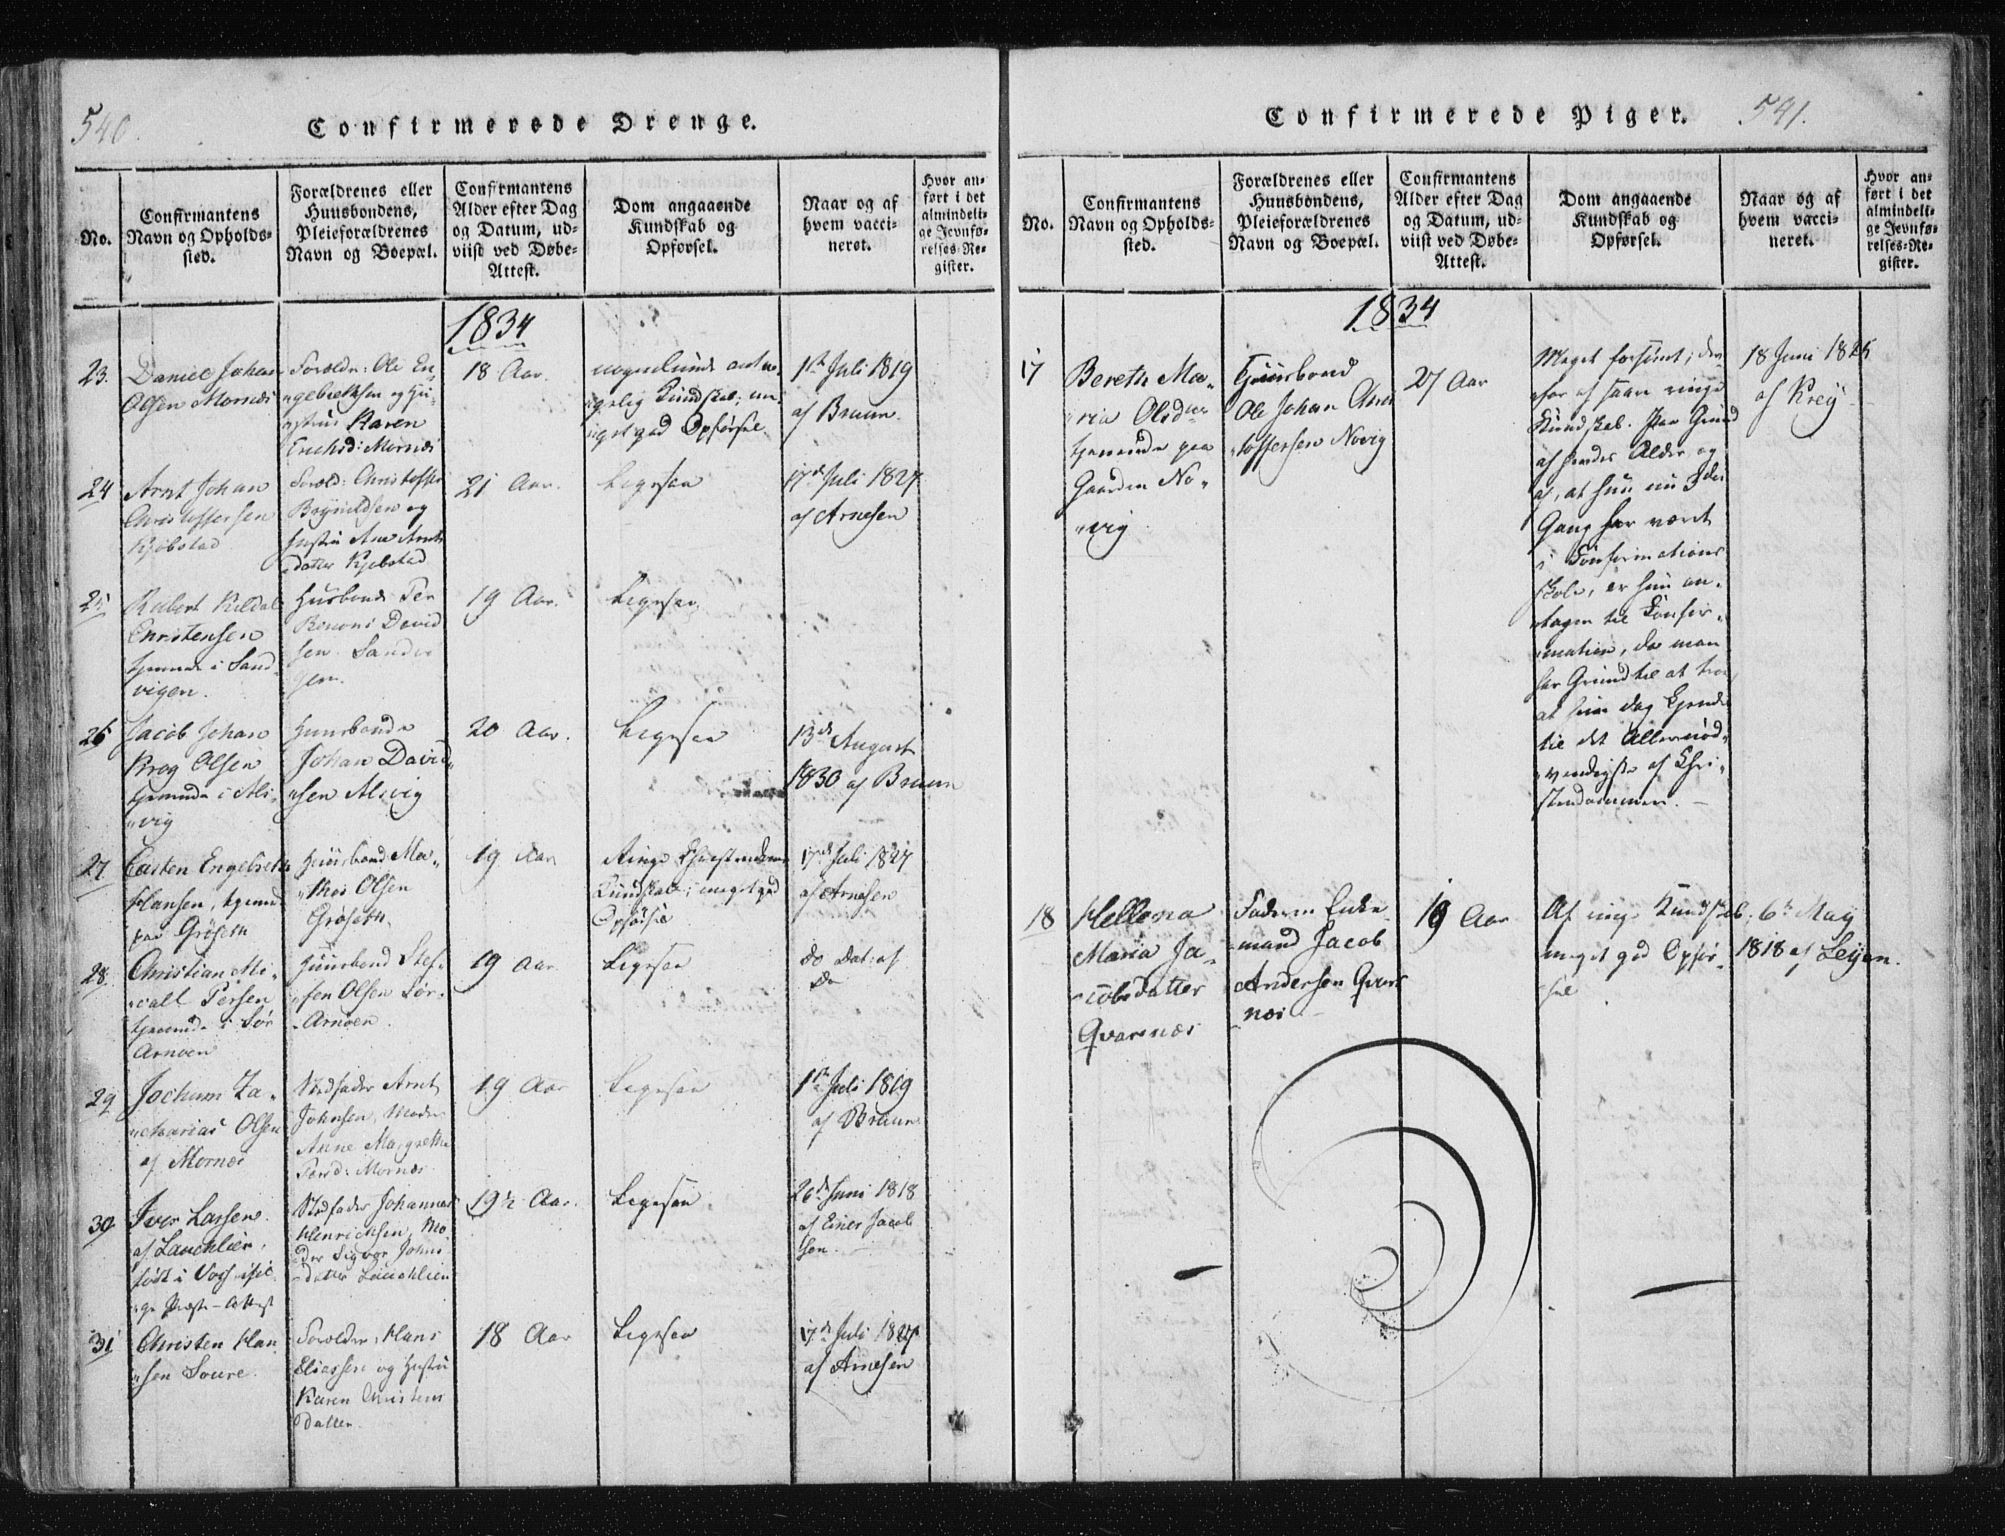 540.
Confirmerede Drenge.
No.
Confirmantens
Navn og Opholds-
sted.
Forældrenes eller
Huusbondens,
Pleieforældrenes
Navn og Boepæl.
Confirmantens
Alder efter Dag
og Datum, ud-
viist ved Døbe-
Attest.
Dom angaaende
Kundskab og
Opførsel.
Naar og af
hvem vacci-
neret.
Hvor an-
ført i det
almindeli-
ge Jevnfø-
relses-Re-
gister.
1834
23.
Daniel Johan
Olsen Mornæs
Forældr: Ole En-
gebrethsen og Hu-
stru Karen
Erichsd: Mornæs
18 Aar.
Kundskab;
god Opførsel
1ste Juli 1819
af Bruun
24
Arnt Johan
Christoffersen
Kjøbstad
Foræld: Christoffer
og
Hustru Ane Arnts
datter Kjøbstad
21 Aar.
Ligesaa
17de Juli 1827
af Arnesen
25
Robert Kildal
Christensen
tjenende i Sand
vigen.
Husbonde Per
Benoni David
sen Sandvi
gen.
19 Aar.
Ligesaa
26
Jacob Johan
Krog Olsen
tjenende i Als-
vig
Huusbonde
Johan David-
sen Alsvig
20 Aar.
Ligesaa
13de August
1830 af Bruun
27
Casten Engelbreth
Hansen, tjenende
paa Grøseth
Huusbond Ma-
this Olsen
Grøseth.
19 Aar
Ringe
Kundskab; meget god
Opførsel
17de Juli 1827
af Arnesen
28.
Christian Mi-
call Persen
tjenende i Sør
Arnøen
Huusbond Stef-
fen Olsen Sør-
Arnøen.
19 Aar
Ligesaa
do Dat: af
Do
29
Jochum Za-
charias Olsen
af Mornæs
Stedfader Arnt
Johnsen, Moder
Anne Margrethe
Persd: Mornæs
19 Aar
Ligesaa
1ste Juli 1819
af Bruun
30
Iver Larsen
af Lauchlien,
født i
ge Præste-Attest
Stedfader Johannes
Henrichsen, Mo
der Sigvor Johns
datter Lauchlien
19½ Aar.
Ligesaa
26de Juni 1818
af Einer Jacob
sen.
31
Christen Han
sen Soure.
Forældre: Hans
Eliassen og Hustru
Karen Christens
datter
18 Aar
Ligesaa
17de Juli 1827
af Arnesen
Confirmerede Piger.
541.
No.
Confirmantens
Navn og Opholds-
sted.
Forældrenes eller
Huusbondens,
Pleieforældrenes
Navn og Boepæl.
Confirmantens
Alder efter Dag
og Datum, ud-
viist ved Døbe-
Attest.
Dom angaaende
Kundskab og
Opførsel.
Naar og af
hvem vacci-
neret.
Hvor an-
ført i det
almindeli-
ge Jevnfø-
relses-Re-
gister.
1834
17
Bereth Ma-
ria Olsdtr
tjenende paa
Gaarden No-
vig
Huusbond
Ole Johan Chris
toffersen Novig
27 Aar
Meget forsømt; der
for af saare ringe
Kundskab. Paa Grund
af hendes Alder og
af, at hun nu 3die
Gang har været
i Confirmations
skole, er hun an-
tagen til Confir-
mation, da man
har Grund til at troe
at hun dog kjender
til det Allernød-
vendigste af Chri-
stendommen.
18 Juni 1825
af Krey
18
Hellena
Maria Ja-
cobsdatter
Qvarsnæs
Faderen Enke
mand Jacob
Andersen Qvars
næs
19 Aar
Af ringe Kundskab,
meget god Opfør-
sel
6te May
1818 af Leyen.